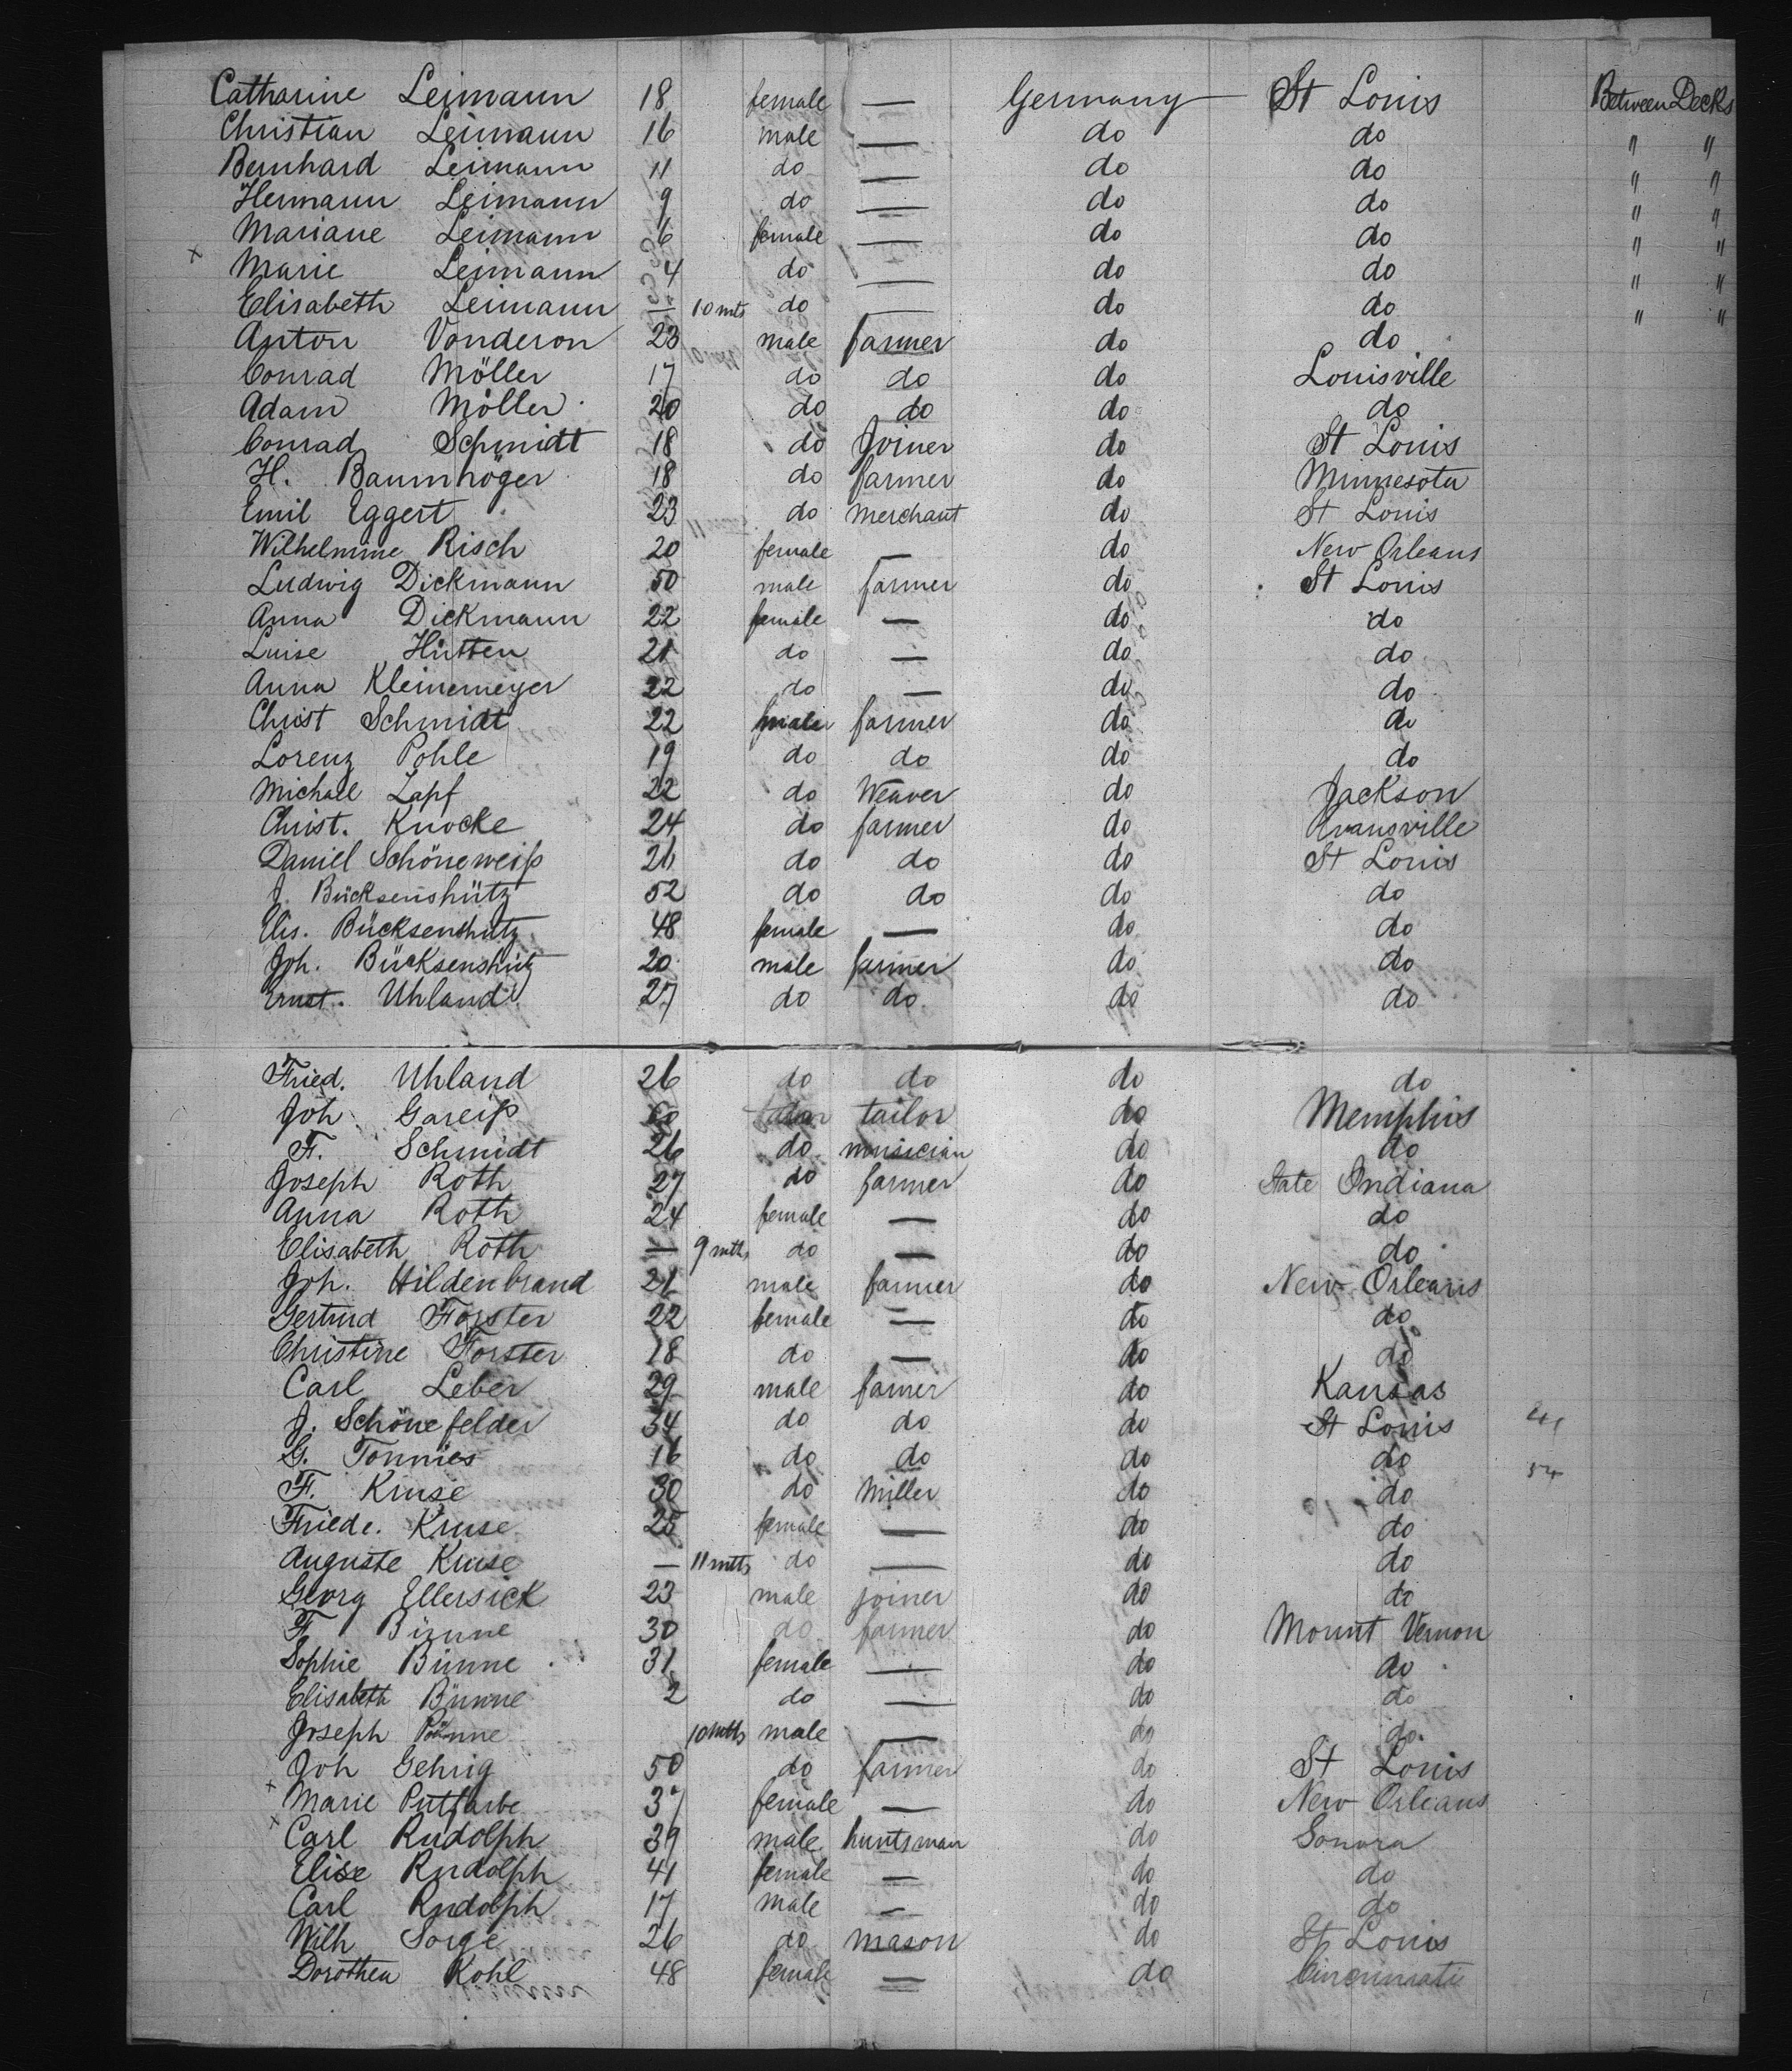 Catharine Leimann 18 female — Germany St Louis Between Decks
Christian Leimann 16 male — do do " "
Bernhard Leimann 11 do — do do " "
Hermann Leimann 9 do — do do " "
Mariane Leimann 6 female — do do " "
x Marie Leimann 4 do — do do " "
Elisabeth Leimann — 10 mts do — do do " "
Anton Vonderon 23 male farmer do do
Conrad Möller 17 do do do Louisville
Adam Möller 20 do do do do
Conrad Schmidt 18 do Joiner do St Louis
H. Baumhöger 18 do farmer do Minnesota
Emil Eggert 23 do merchant do St Louis
Wilhelmine Risch 20 female — do New Orleans
Ludwig Dickmann 50 male farmer do St Louis
Anna Dickmann 22 female — do do
Luise Hütten 21 do — do do
Anna Kleinemeyer 22 do — do do
Christ Schmidt 22 male farmer do do
Lorenz Pohle 19 do do do do
Michael Zapf 22 do Weaver do Jackson
Christ. Knocke 24 do farmer do Evansville
Daniel Schöneweiß 21 do do do St Louis
J. Bücksenshütz 52 do do do do
Elis. Bücksenshütz 48 female — do do
Joh. Bücksenshütz 20 male farmer do do
Ernst. Uhland 27 do do do do
Fried. Uhland 26 do do do do
Joh. Gareiß 60 tailor do Memphis
F. Schmidt 26 do musician do do
Joseph Roth 27 do farmer do State Indiana
Anna Roth 24 female — do do
Elisabeth Roth — 9 mths do — do do
Joh. Hildenbrand 21 male farmer do New Orleans
Gertrud Forster 22 female — do do
Christine Forster 18 do — do do
Carl Leber 29 male farmer do Kansas
J. Schönefelder 34 do do do St Louis
G. Tonnies 16 do do do do
F. Kruse 30 do Miller do do
Friede. Kruse 25 female — do do
Auguste Kruse — 11 mths do — do do
Georg Ellersick 23 male joiner do do
F. Bünne 30 do farmer do Mount Vernon
Sophie Bünne 31 female — do do
Elisabeth Bünne 2 do — do do
Joseph Bünne 10 mths male — do do
Joh Gehrig 50 do farmer do St Louis
x Marie Putfarbe 37 female — do New Orleans
x Carl Rudolph 39 male huntsman do Sonora
Elise Rudolph 41 female — do do
Carl Rudolph 17 male — do do
Wilh Sorge 26 do mason do St Louis
Dorothea Kohl 48 female — do Cincinnati